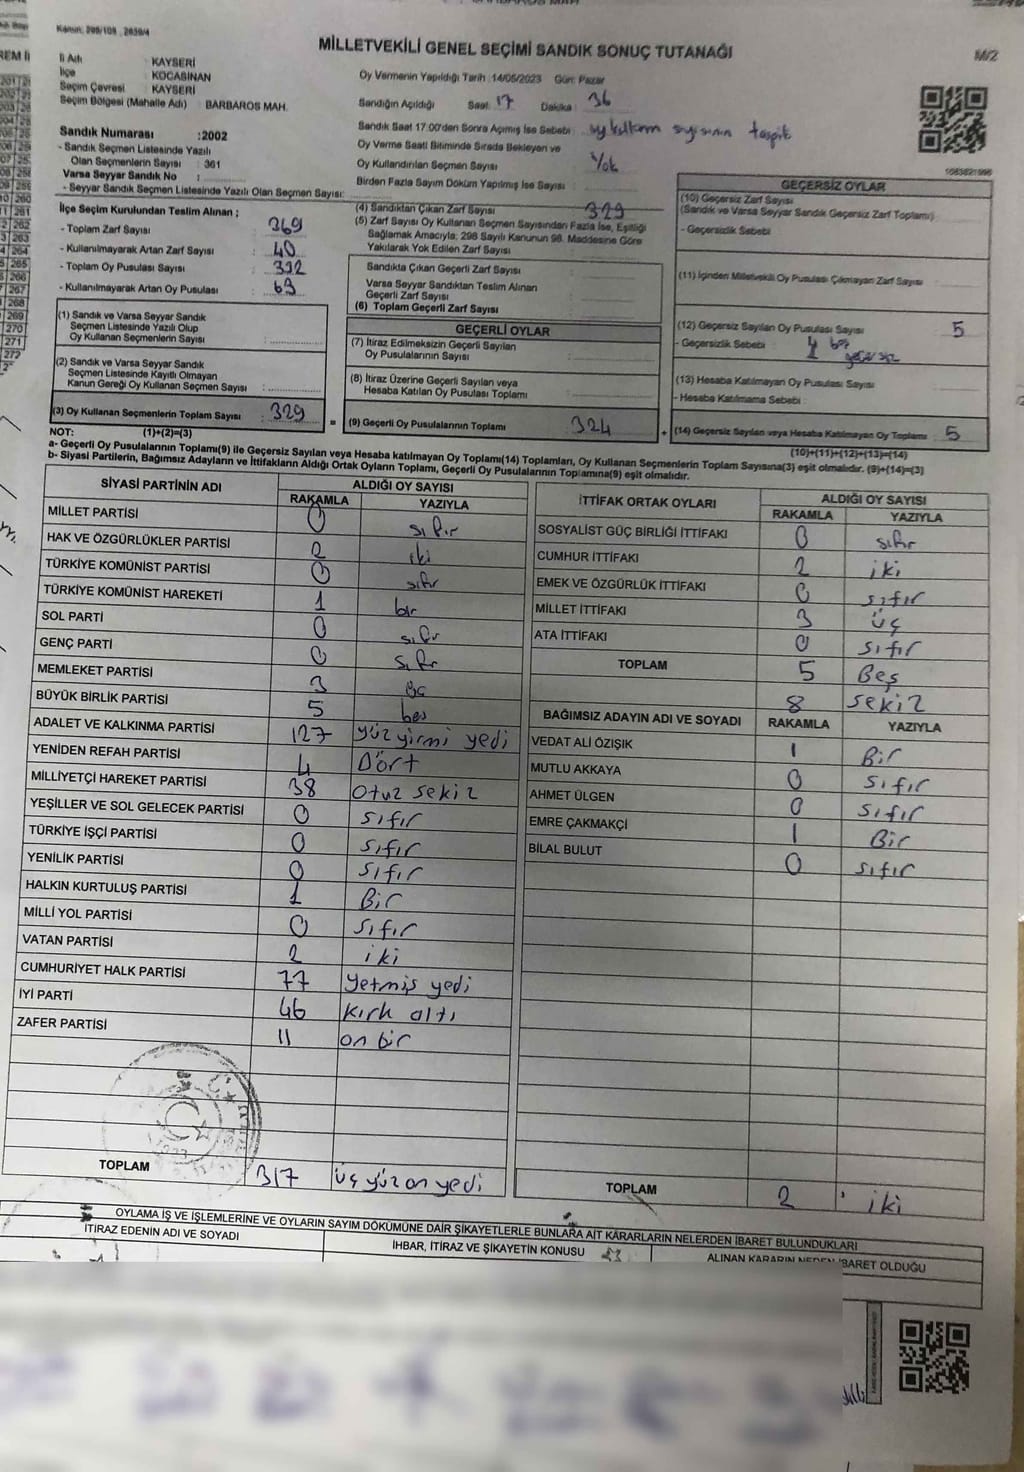 Kanun: 298/108 , 2839/4
MİLLETVEKİLİ GENEL SEÇİMİ SANDIK SONUÇ TUTANAĞI
M/2
İl Adı : KAYSERİ
İlçe : KOCASİNAN
Seçim Çevresi : KAYSERİ
Seçim Bölgesi (Mahalle Adı) : BARBAROS MAH.
Oy Vermenin Yapıldığı Tarih :14/05/2023 Gün: Pazar
Sandığın Açıldığı Saat: 17 Dakika : 36
Sandık Saat 17:00'den Sonra Açımış İse Sebebi : oy kullanan sayısının tespiti
Oy Verme Saati Bitiminde Sırada Bekleyen ve
Oy Kullandırılan Seçmen Sayısı : Yok
Birden Fazla Sayım Döküm Yapılmış İse Sayısı :
Sandık Numarası :2002
- Sandık Seçmen Listesinde Yazılı
Olan Seçmenlerin Sayısı : 361
Varsa Seyyar Sandık No :
- Seyyar Sandık Seçmen Listesinde Yazılı Olan Seçmen Sayısı:
İlçe Seçim Kurulundan Teslim Alınan ;
- Toplam Zarf Sayısı : 369
- Kullanılmayarak Artan Zarf Sayısı : 40
- Toplam Oy Pusulası Sayısı : 392
- Kullanılmayarak Artan Oy Pusulası : 63
(1) Sandık ve Varsa Seyyar Sandık
Seçmen Listesinde Yazılı Olup
Oy Kullanan Seçmenlerin Sayısı :
(2) Sandık ve Varsa Seyyar Sandık
Seçmen Listesinde Kayıtlı Olmayan
Kanun Gereği Oy Kullanan Seçmen Sayısı :
(3) Oy Kullanan Seçmenlerin Toplam Sayısı : 329
(4) Sandıktan Çıkan Zarf Sayısı : 329
(5) Zarf Sayısı Oy Kullanan Seçmen Sayısından Fazla İse, Eşitliği
Sağlamak Amacıyla; 298 Sayılı Kanunun 98. Maddesine Göre
Yakılarak Yok Edilen Zarf Sayısı :
Sandıkta Çıkan Geçerli Zarf Sayısı :
Varsa Seyyar Sandıktan Teslim Alınan
Geçerli Zarf Sayısı :
(6) Toplam Geçerli Zarf Sayısı :
GEÇERLİ OYLAR
(7) İtiraz Edilmeksizin Geçerli Sayılan
Oy Pusulalarının Sayısı :
(8) İtiraz Üzerine Geçerli Sayılan veya
Hesaba Katılan Oy Pusulası Toplamı :
= (9) Geçerli Oy Pusulalarının Toplamı : 324
GEÇERSİZ OYLAR
(10) Geçersiz Zarf Sayısı
(Sandık ve Varsa Seyyar Sandık Geçersiz Zarf Toplamı)
- Geçersizlik Sebebi :
(11) İçinden Milletvekili Oy Pusulası Çıkmayan Zarf Sayısı
(12) Geçersiz Sayılan Oy Pusulası Sayısı 5
- Geçersizlik Sebebi : 4 boş
1 geçersiz
(13) Hesaba Katılmayan Oy Pusulası Sayısı
- Hesaba Katılmama Sebebi :
+ (14) Geçersiz Sayılan veya Hesaba Katılmayan Oy Toplamı 5
NOT: (1)+(2)=(3)
(10)+(11)+(12)+(13)=(14)
a- Geçerli Oy Pusulalarının Toplamı(9) ile Geçersiz Sayılan veya Hesaba katılmayan Oy Toplamı(14) Toplamları, Oy Kullanan Seçmenlerin Toplam Sayısına(3) eşit olmalıdır. (9)+(14)=(3)
b- Siyasi Partilerin, Bağımsız Adayların ve İttifakların Aldığı Ortak Oyların Toplamı, Geçerli Oy Pusulalarının Toplamına(9) eşit olmalıdır.
SİYASİ PARTİNİN ADI ALDIĞI OY SAYISI
RAKAMLA YAZIYLA
MİLLET PARTİSİ 0 sıfır
HAK VE ÖZGÜRLÜKLER PARTİSİ 2 iki
TÜRKİYE KOMÜNİST PARTİSİ 0 sıfır
TÜRKİYE KOMÜNİST HAREKETİ 1 bir
SOL PARTİ 0 sıfır
GENÇ PARTİ 0 sıfır
MEMLEKET PARTİSİ 3 üç
BÜYÜK BİRLİK PARTİSİ 5 beş
ADALET VE KALKINMA PARTİSİ 127 yüz yirmi yedi
YENİDEN REFAH PARTİSİ 4 Dört
MİLLİYETÇİ HAREKET PARTİSİ 38 otuz sekiz
YEŞİLLER VE SOL GELECEK PARTİSİ 0 sıfır
TÜRKİYE İŞÇİ PARTİSİ 0 sıfır
YENİLİK PARTİSİ 0 sıfır
HALKIN KURTULUŞ PARTİSİ 1 Bir
MİLLİ YOL PARTİSİ 0 sıfır
VATAN PARTİSİ 2 iki
CUMHURİYET HALK PARTİSİ 77 yetmiş yedi
İYİ PARTİ 46 kırk altı
ZAFER PARTİSİ 11 on bir
TOPLAM 317 üç yüz on yedi
İTTİFAK ORTAK OYLARI ALDIĞI OY SAYISI
RAKAMLA YAZIYLA
SOSYALİST GÜÇ BİRLİĞİ İTTİFAKI 0 sıfır
CUMHUR İTTİFAKI 2 iki
EMEK VE ÖZGÜRLÜK İTTİFAKI 0 sıfır
MİLLET İTTİFAKI 3 üç
ATA İTTİFAKI 0 sıfır
TOPLAM 5 Beş
8 sekiz
BAĞIMSIZ ADAYIN ADI VE SOYADI RAKAMLA YAZIYLA
VEDAT ALİ ÖZIŞIK 1 Bir
MUTLU AKKAYA 0 sıfır
AHMET ÜLGEN 0 sıfır
EMRE ÇAKMAKÇİ 1 Bir
BİLAL BULUT 0 sıfır
TOPLAM 2 iki
OYLAMA İŞ VE İŞLEMLERİNE VE OYLARIN SAYIM DÖKÜMÜNE DAİR ŞİKAYETLERLE BUNLARA AİT KARARLARIN NELERDEN İBARET BULUNDUKLARI
İTİRAZ EDENİN ADI VE SOYADI İHBAR, İTİRAZ VE ŞİKAYETİN KONUSU ALINAN KARARIN NEDEN İBARET OLDUĞU